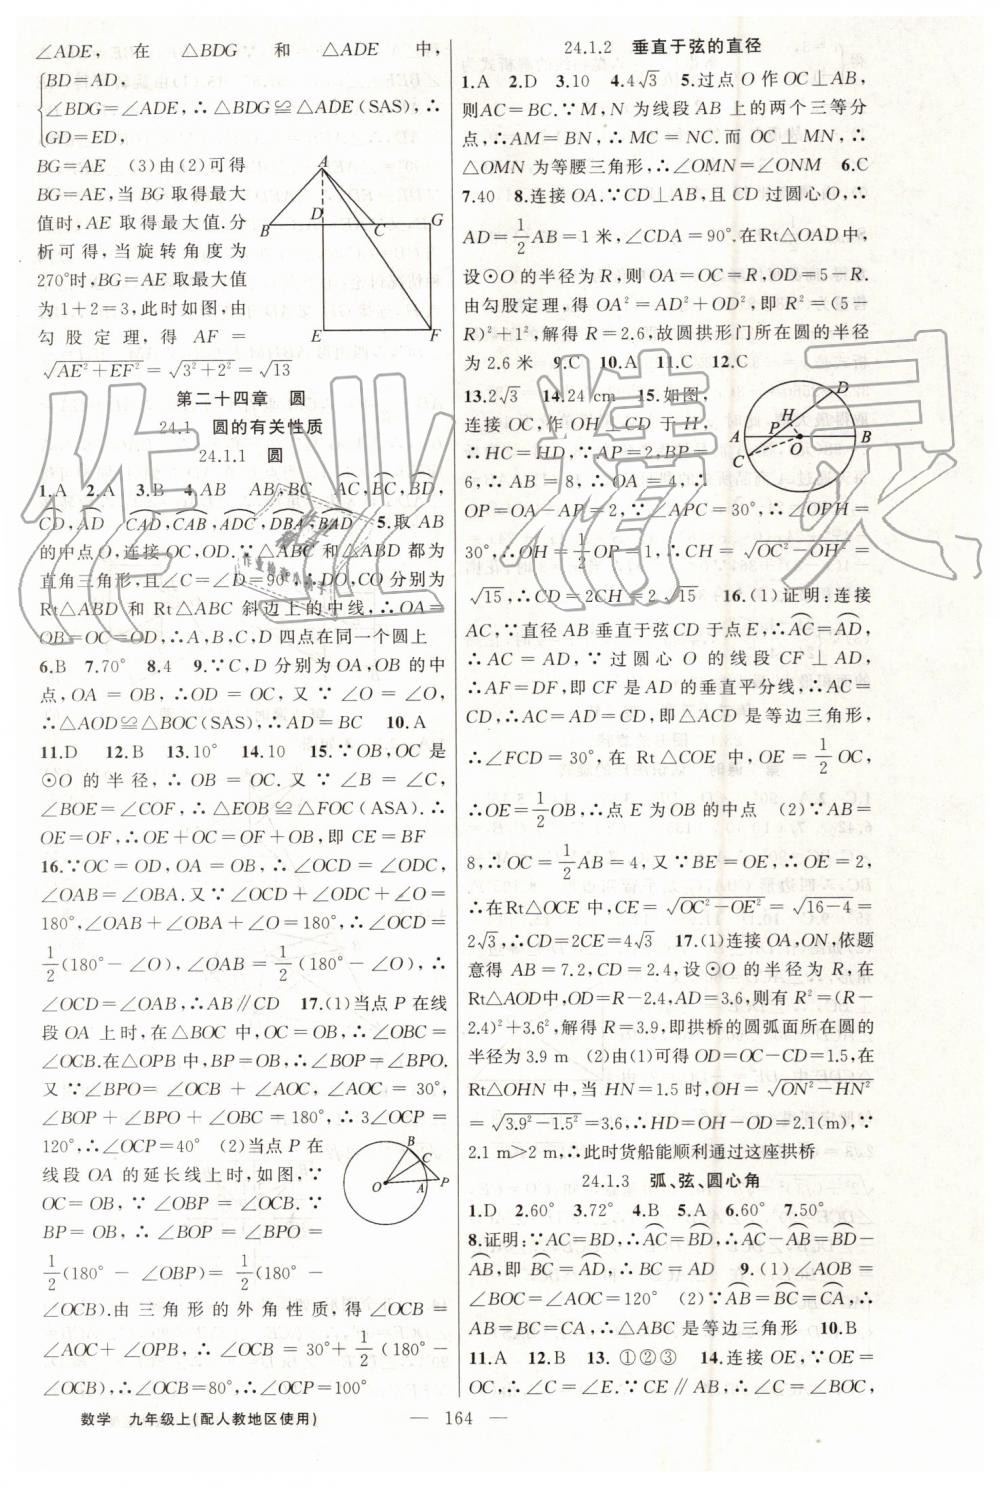 ∠ADE, 在 △BDG 和 △ADE 中,
{BD=AD,
∠BDG=∠ADE, ∴△BDG≌△ADE(SAS), ∴
GD=ED,
BG=AE (3)由(2)可得
BG=AE, 当 BG 取得最大
值时, AE 取得最大值. 分
析可得, 当旋转角度为
270°时, BG=AE 取最大值
为1+2=3, 此时如图, 由
勾股定理, 得 AF=
√(AE²+EF²)=√(3²+2²)=√13
A
D
B
C
G
E
F
第二十四章 圆
24.1 圆的有关性质
24.1.1 圆
1.A 2.A 3.B 4.AB AB,BC AC,BC,BD,
CD,AD CAD,CAB,ADC,DBA,BAD 5.取 AB
的中点O, 连接 OC,OD. ∵△ABC 和△ABD 都为
直角三角形, 且∠C=∠D=90°, ∴DO,CO 分别为
Rt△ABD 和 Rt△ABC 斜边上的中线, ∴OA=
OB=OC=OD, ∴A,B,C,D 四点在同一个圆上
6.B 7.70° 8.4 9.∵C,D 分别为OA,OB 的中
点, OA=OB, ∴OD=OC, 又∵∠O=∠O,
∴△AOD≌△BOC(SAS), ∴AD=BC 10.A
11.D 12.B 13.10° 14.10 15.∵OB,OC 是
⊙O 的半径, ∴OB=OC. 又∵∠B=∠C,
∠BOE=∠COF, ∴△EOB≌△FOC(ASA). ∴
OE=OF, ∴OE+OC=OF+OB, 即 CE=BF
16.∵OC=OD,OA=OB, ∴∠OCD=∠ODC,
∠OAB=∠OBA. 又∵∠OCD+∠ODC+∠O=
180°, ∠OAB+∠OBA+∠O=180°, ∴∠OCD=
1/2(180°-∠O), ∠OAB=1/2(180°-∠O), ∴
∠OCD=∠OAB, ∴AB∥CD 17.(1)当点 P 在线
段 OA 上时, 在△BOC 中, OC=OB, ∴∠OBC=
∠OCB. 在△OPB 中, BP=OB, ∴∠BOP=∠BPO.
又∵∠BPO=∠OCB+∠AOC, ∠AOC=30°,
∠BOP+∠BPO+∠OBC=180°, ∴3∠OCP=
120°, ∴∠OCP=40° (2)当点 P 在
线段 OA 的延长线上时, 如图, ∵
OC=OB, ∴∠OBP=∠OCB. ∵
BP=OB, ∴∠BOP=∠BPO=
1/2(180°-∠OBP)=1/2(180°-
∠OCB). 由三角形的外角性质, 得∠OCB=
∠AOC+∠OPB, ∴∠OCB=30°+1/2(180°-
∠OCB), ∴∠OCB=80°, ∴∠OCP=100°
B
C
O
A
P
24.1.2 垂直于弦的直径
1.A 2.D 3.10 4.4√3 5.过点 O 作 OC⊥AB,
则AC=BC. ∵M,N 为线段 AB 上的两个三等分
点, ∴AM=BN, ∴MC=NC. 而 OC⊥MN, ∴
△OMN 为等腰三角形, ∴∠OMN=∠ONM 6.C
7.40 8.连接 OA. ∵CD⊥AB, 且 CD 过圆心 O, ∴
AD=1/2AB=1 米, ∠CDA=90°. 在 Rt△OAD 中,
设⊙O 的半径为 R, 则 OA=OC=R, OD=5-R.
由勾股定理, 得 OA²=AD²+OD², 即 R²=(5-
R)²+1², 解得 R=2.6, 故圆拱形门所在圆的半径
为 2.6 米 9.C 10.A 11.C 12.C
13.2√3 14.24 cm 15.如图,
连接 OC, 作 OH⊥CD 于 H,
∴HC=HD, ∵AP=2,BP=
6, ∴AB=8, ∴OA=4, ∴
OP=OA-AP=2, ∵∠APC=30°, ∴∠OPH=
30°, ∴OH=1/2OP=1, ∴CH=√(OC²-OH²)=
√15, ∴CD=2CH=2√15 16.(1)证明: 连接
AC, ∵直径 AB 垂直于弦 CD 于点 E, ∴AC=AD,
∴AC=AD. ∵过圆心 O 的线段 CF⊥AD,
∴AF=DF, 即 CF 是 AD 的垂直平分线, ∴AC=
CD, ∴AC=AD=CD, 即△ACD 是等边三角形,
∴∠FCD=30°, 在 Rt△COE 中, OE=1/2OC,
∴OE=1/2OB, ∴点 E 为 OB 的中点 (2)∵AB=
8, ∴OC=1/2AB=4, 又∵BE=OE, ∴OE=2,
∴在Rt△OCE 中, CE=√(OC²-OE²)=√(16-4)=
2√3, ∴CD=2CE=4√3 17.(1)连接 OA,ON, 依题
意得 AB=7.2, CD=2.4, 设⊙O 的半径为 R, 在
Rt△AOD中, OD=R-2.4, AD=3.6, 则有 R²=(R-
2.4)²+3.6², 解得 R=3.9, 即拱桥的圆弧面所在圆的
半径为 3.9 m (2)由(1)可得 OD=OC-CD=1.5, 在
Rt△OHN 中, 当 HN=1.5 时, OH=√(ON²-HN²)
=√(3.9²-1.5²)=3.6, ∴HD=OH-OD=2.1(m), ∵
2.1 m>2 m, ∴此时货船能顺利通过这座拱桥
D
H
P
A
O
B
C
24.1.3 弧、弦、圆心角
1.D 2.60° 3.72° 4.B 5.A 6.60° 7.50°
8.证明: ∵AC=BD, ∴AC=BD, ∴AC-AB=BD-
AB, 即 BC=AD, ∴BC=AD 9.(1)∠AOB=
∠BOC=∠AOC=120° (2)∵AB=BC=CA, ∴
AB=BC=CA, ∴△ABC 是等边三角形 10.B
11.A 12.B 13.①②③ 14.连接 OE, ∵OE=
OC, ∴∠C=∠OEC, ∵CE∥AB, ∴∠C=∠BOC,
数学 九年级上(配人教地区使用)
— 164 —
作业精灵